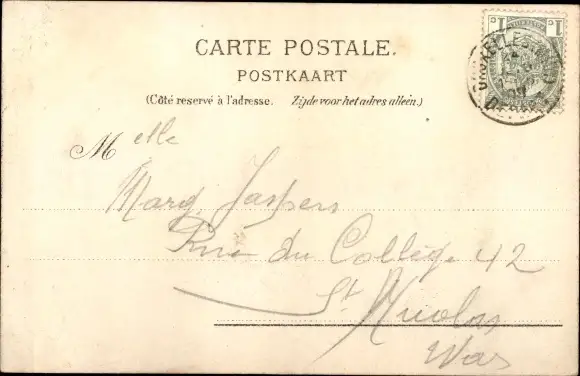 CARTE POSTALE.
POSTKAART
(Côté reservé à l'adresse. Zijde voor het adres alleen.)
1c 1c
M elle
Marg. Jaspers
Rue du Collège 42
St Nicolas
Waes